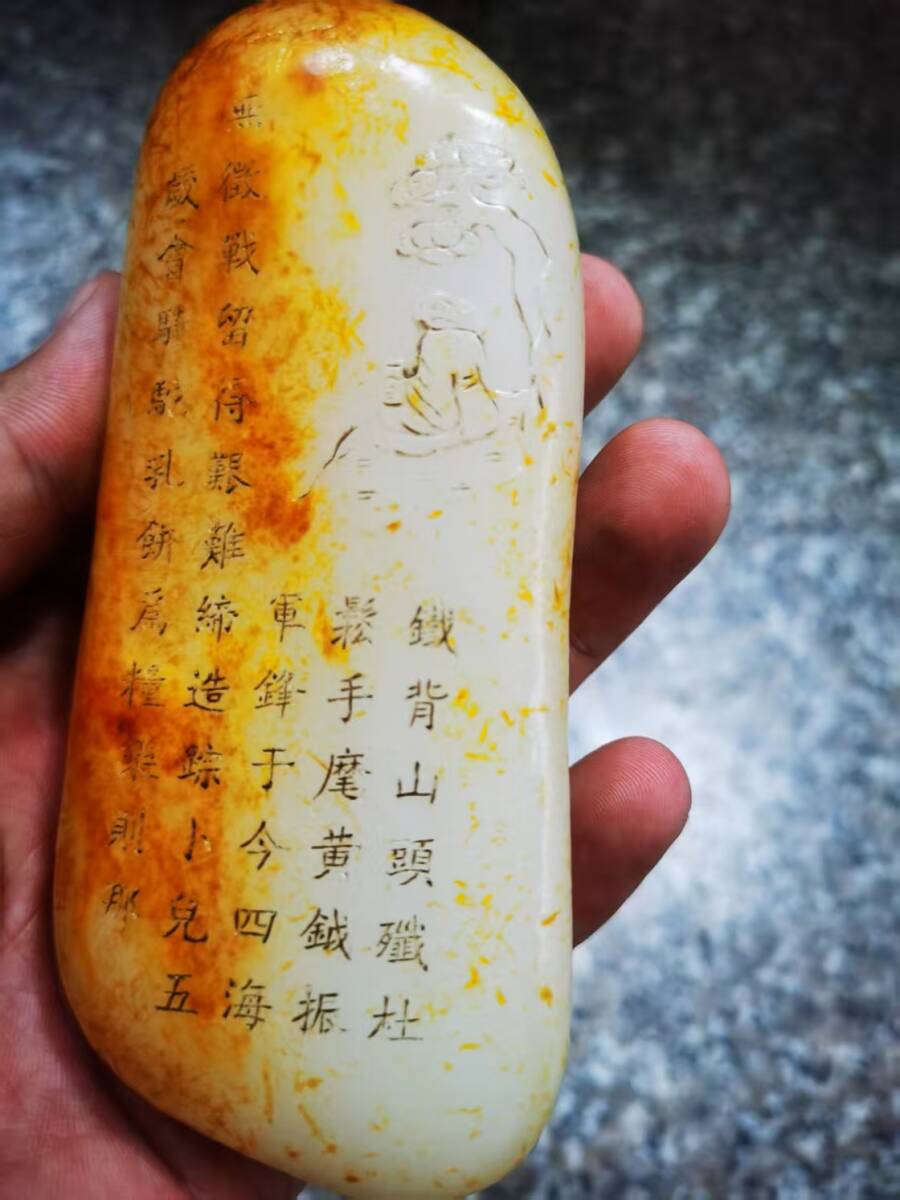 鐵背山頭殲杜
鬆手麾黃鉞振
軍鋒于今四海
無徵戰留得艱難締造踪卜兒五
歲會騎駝乳餅爲糧樂則那